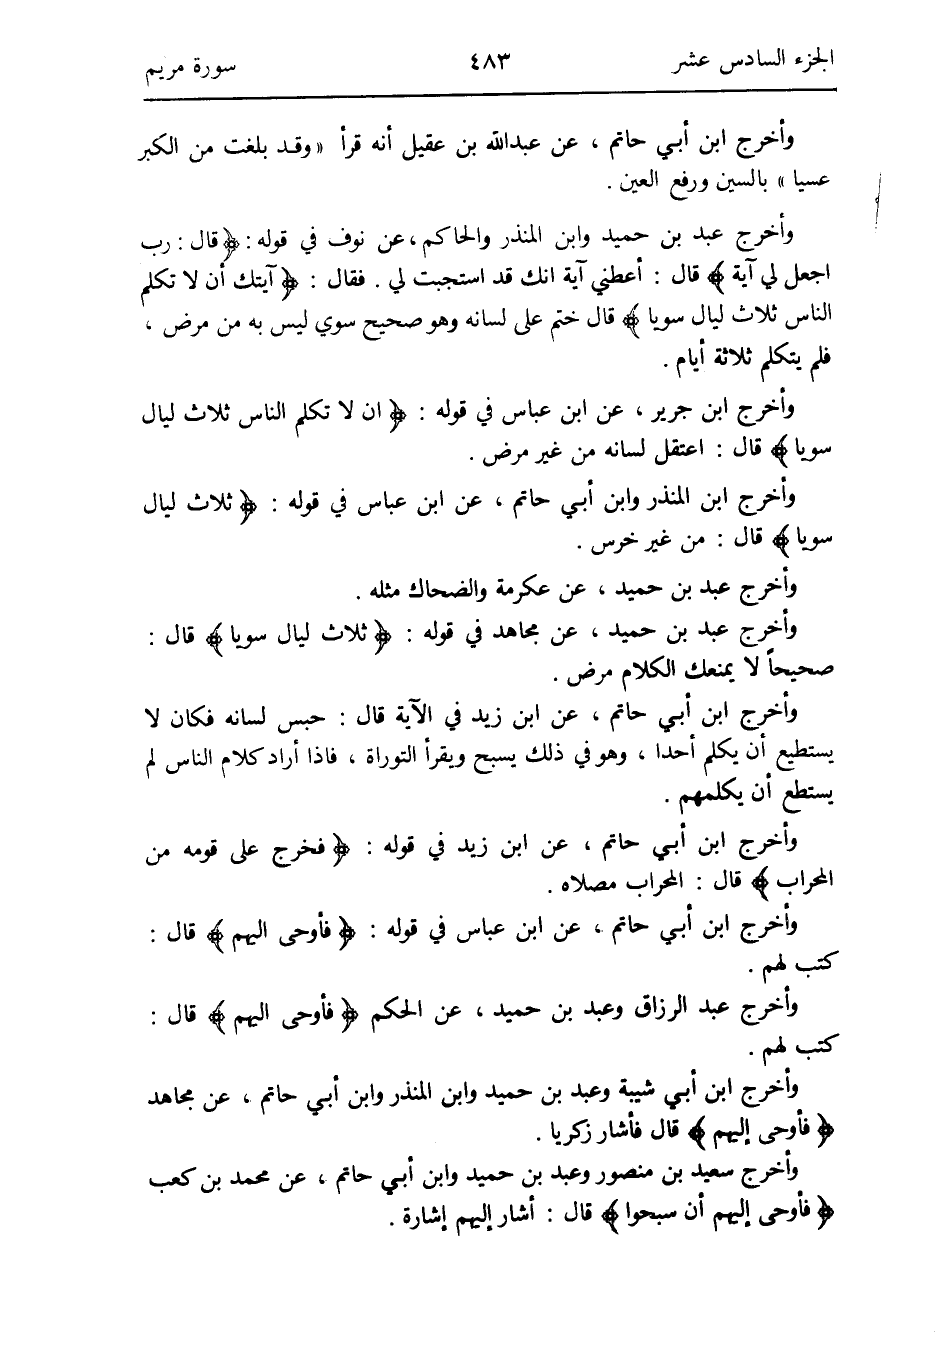 الجزء السادس عشر ٤٨٣ سورة مريم
وأخرج ابن أبـي حاتم ، عن عبدالله بن عقيل أنه قرأ « وقـد بلغت من الكبر
عسيا » بالسين ورفع العين .
وأخرج عبد بن حميد وابن المنذر والحاكم ، عن نوف في قوله : ﴿ قال : رب
اجعل لي آية ﴾ قال : أعطني آية انك قد استجبت لي . فقال : ﴿ آيتك أن لا تكلم
الناس ثلاث ليال سويا ﴾ قال ختم على لسانه وهو صحيح سوي ليس به من مرض ،
فلم يتكلم ثلاثة أيام .
وأخرج ابن جرير ، عن ابن عباس في قوله : ﴿ ان لا تكلم الناس ثلاث ليال
سويا ﴾ قال : اعتقل لسانه من غير مرض .
وأخرج ابن المنذر وابن أبـي حاتم ، عن ابن عباس في قوله : ﴿ ثلاث ليال
سويا ﴾ قال : من غير خرس .
وأخرج عبد بن حميد ، عن عكرمة والضحاك مثله .
وأخرج عبد بن حميد ، عن مجاهد في قوله : ﴿ ثلاث ليال سويا ﴾ قال :
صحيحاً لا يمنعك الكلام مرض .
وأخرج ابن أبـي حاتم ، عن ابن زيد في الآية قال : حبس لسانه فكان لا
يستطيع أن يكلم أحدا ، وهو في ذلك يسبح ويقرأ التوراة ، فاذا أراد كلام الناس لم
يستطع أن يكلمهم .
وأخرج ابن أبـي حاتم ، عن ابن زيد في قوله : ﴿ فخرج على قومه من
المحراب ﴾ قال : المحراب مصلاه .
وأخرج ابن أبـي حاتم ، عن ابن عباس في قوله : ﴿ فأوحى اليهم ﴾ قال :
كتب لهم .
وأخرج عبد الرزاق وعبد بن حميد ، عن الحكم ﴿ فأوحى اليهم ﴾ قال :
كتب لهم .
وأخرج ابن أبي شيبة وعبد بن حميد وابن المنذر وابن أبي حاتم ، عن مجاهد
﴿ فأوحى إليهم ﴾ قال فأشار زكريا .
وأخرج سعيد بن منصور وعبد بن حميد وابن أبي حاتم ، عن محمد بن كعب
﴿ فأوحى إليهم أن سبحوا ﴾ قال : أشار إليهم إشارة .